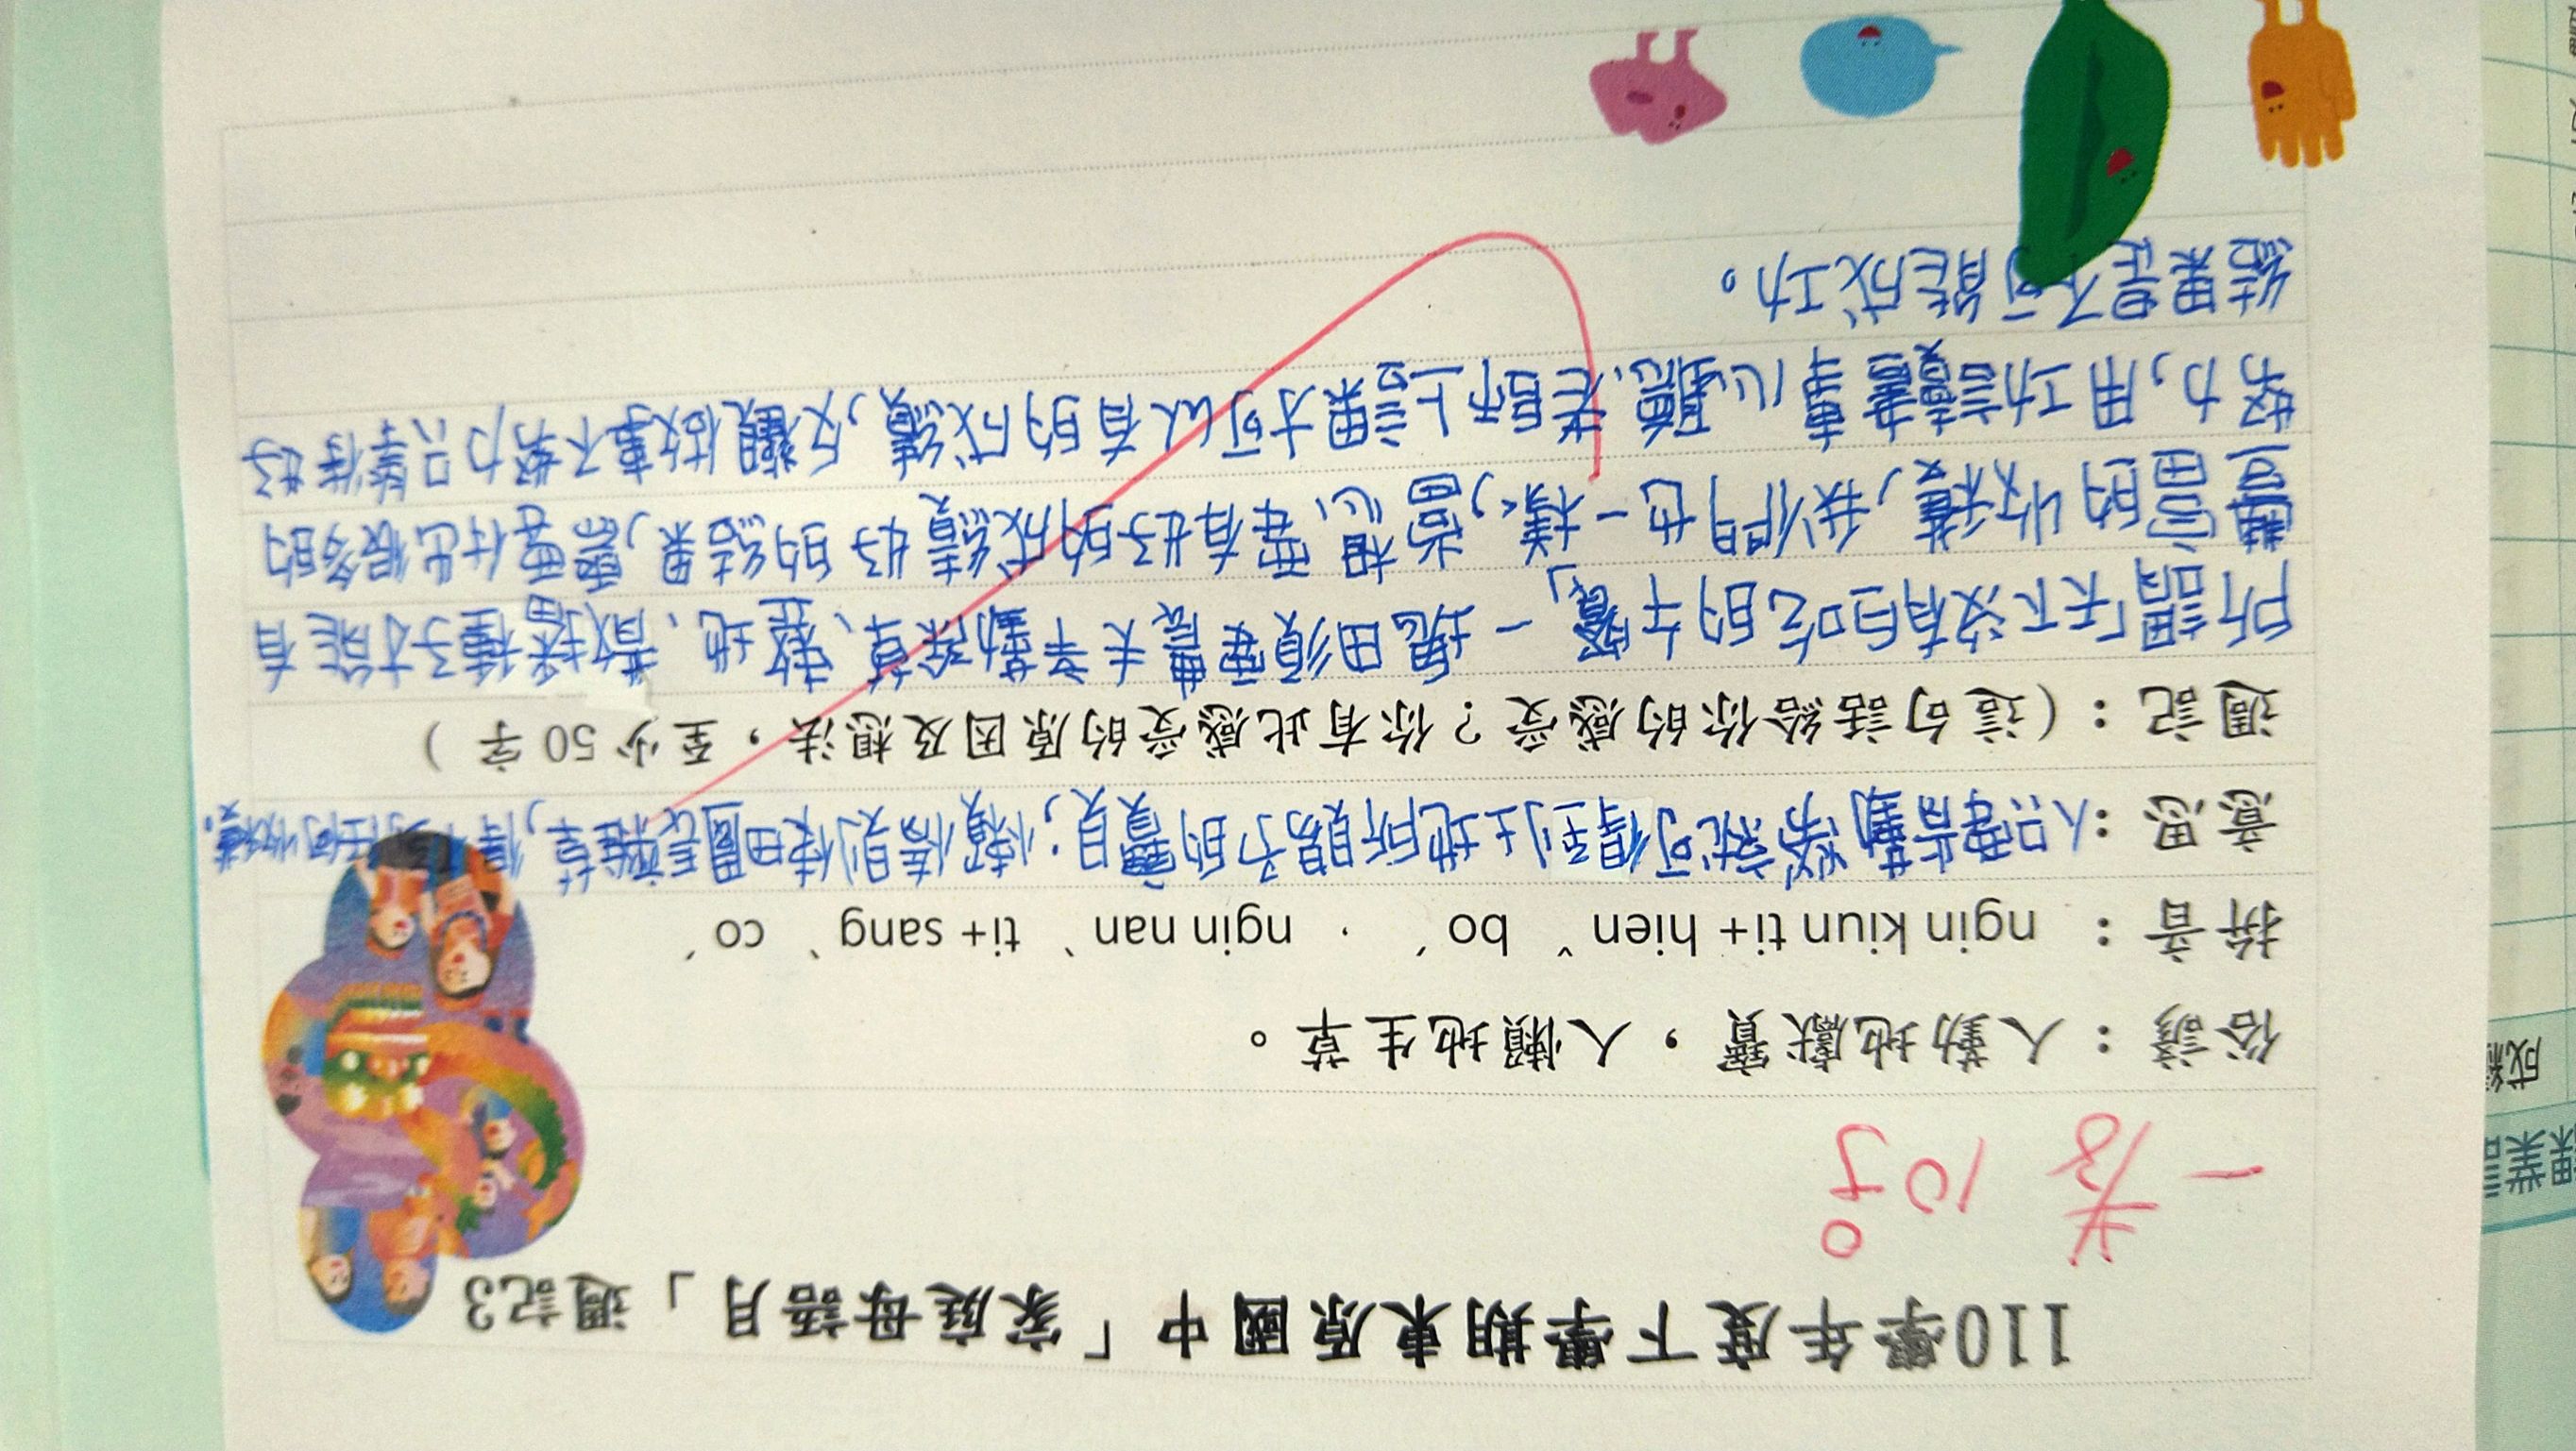 110學年度下學期東原國中「家庭母語月」週記3
一 10
俗諺：人勤地獻寶，人懶地生草。
拼音： ngin kiun ti+ hienˇ boˊ ， ngin nanˋ ti+ sangˋ coˊ
意思：人只要肯勤勞就可得到土地所賜予的寶貝；懶惰則使田園長雜草，得不到任何收穫.
週記：(這句話給你的感受？你有此感受的原因及想法，至少50字)
所謂「天下沒有白吃的午餐」一塊田須要農夫辛勤除草、整地、散播種子才能有
豐富的收穫，我們也一樣，當想要有好的成績好的結果，需要付出很多的
努力，用功讀書專心聽老師上課才可以有的成績，反觀做事不努力只等待好
結果是不可能成功。
成績
課業